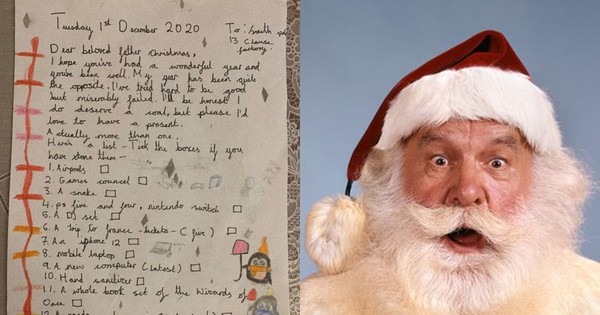 Tuesday 1st December 2020
To: South
13 Clause
factory.
Dear beloved father Christmas,
I hope you've had a wonderful year and
you've been well. My year has been quite
the opposite. I've tried hard to be good
but miserably failed. I'll be honest I
do deserve a coal, but please I'd
love to have a present.
Actually more than one.
Here's a list - Tick the boxes if you
have done them -
1. Airpods
2. Games councel
3. A snake
4. ps five and four, nintendo switch
5. A DJ set
6. A trip to france - tickets - (five)
7. An iphone 12
8. mobile laptop
9. A new computer (latest)
10. Hand sanitizer
11. A whole book set of the Wizards of
Once
12. A